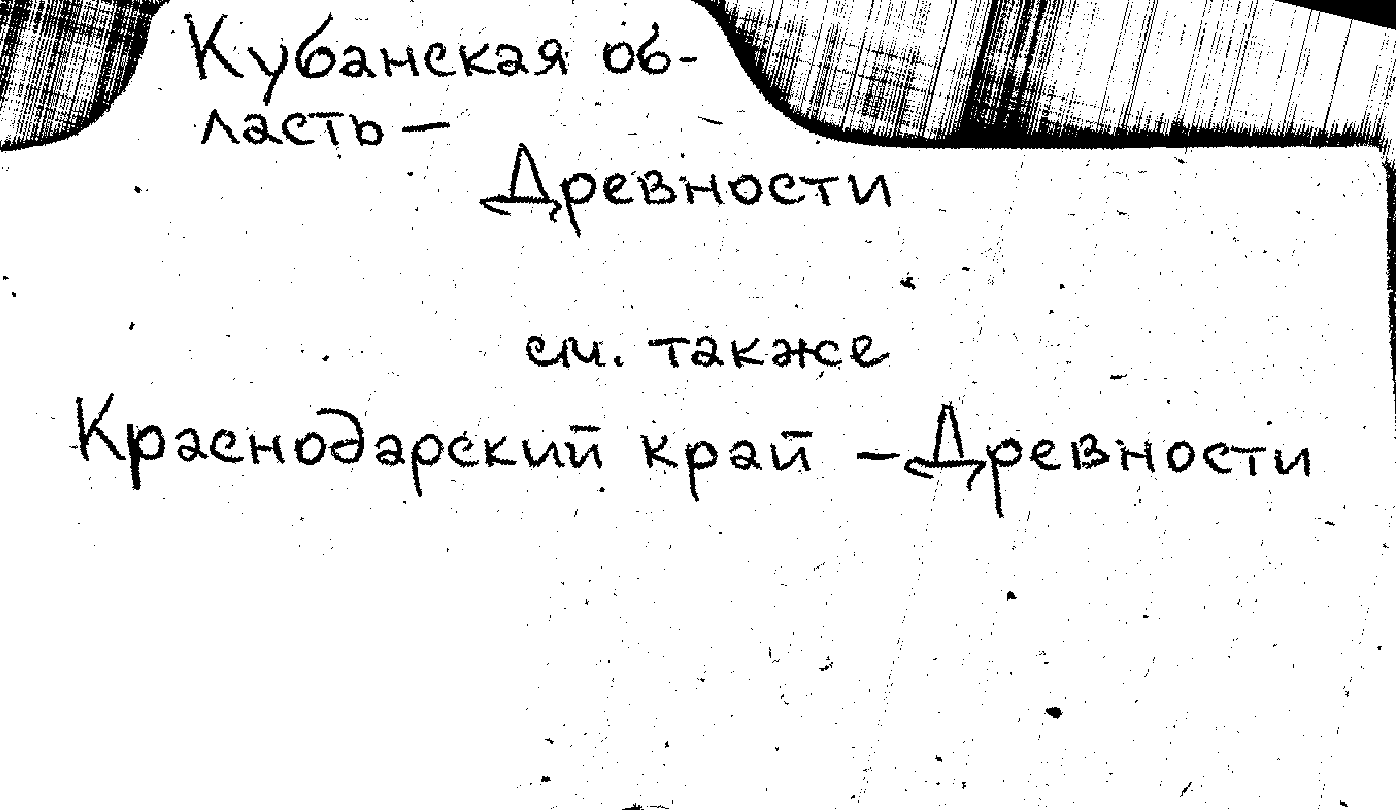 Кубанская об-
ласть —
Древности
см. также
Краснодарский край — Древности